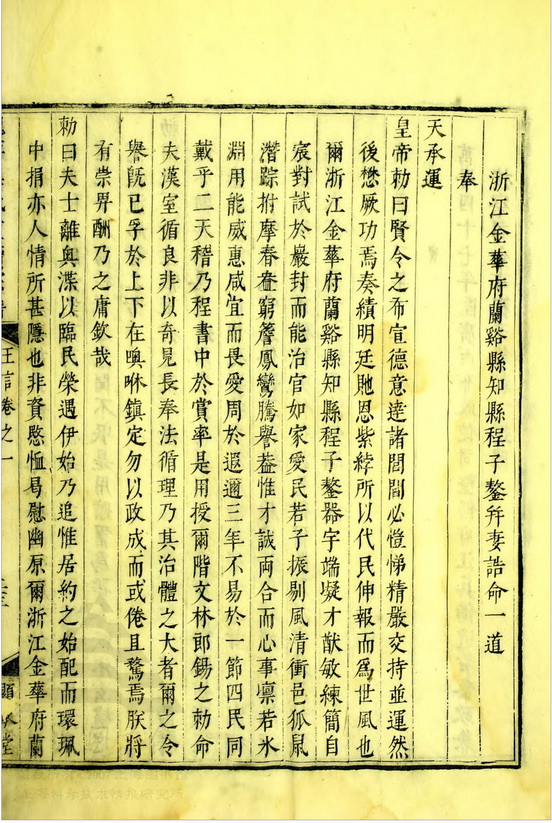 浙江金華府蘭谿縣知縣程子鏊并妻誥命一道
奉
天承運
皇帝勅曰賢令之布宣德意達諸閭閻必愷悌精嚴交持並運然
後懋厥功焉奏績明廷貤恩紫綍所以代民伸報而爲世風也
爾浙江金華府蘭谿縣知縣程子鏊器宇端凝才猷敏練簡自
宸對試於巖封而能治官如家愛民若子振剔風清衝邑狐鼠
潛踪拊摩春盎窮簷鳳鸞騰譽葢惟才誠兩合而心事凛若氷
淵用能威惠咸宜而畏愛周於遐邇三年不易於一節四民同
戴乎二天稽乃程書中於賞率是用授爾階文林郎錫之勅命
夫漢室循良非以奇見長奉法循理乃其治體之大者爾之令
譽旣已孚於上下在噢咻鎮定勿以政成而或倦且騖焉朕將
有崇畀酬乃之庸欽哉
勅曰夫士離輿渫以臨民榮遇伊始乃追惟居約之始配而環珮
中捐亦人情所甚隱也非賁愍恤曷慰幽原爾浙江金華府蘭
王言卷之一